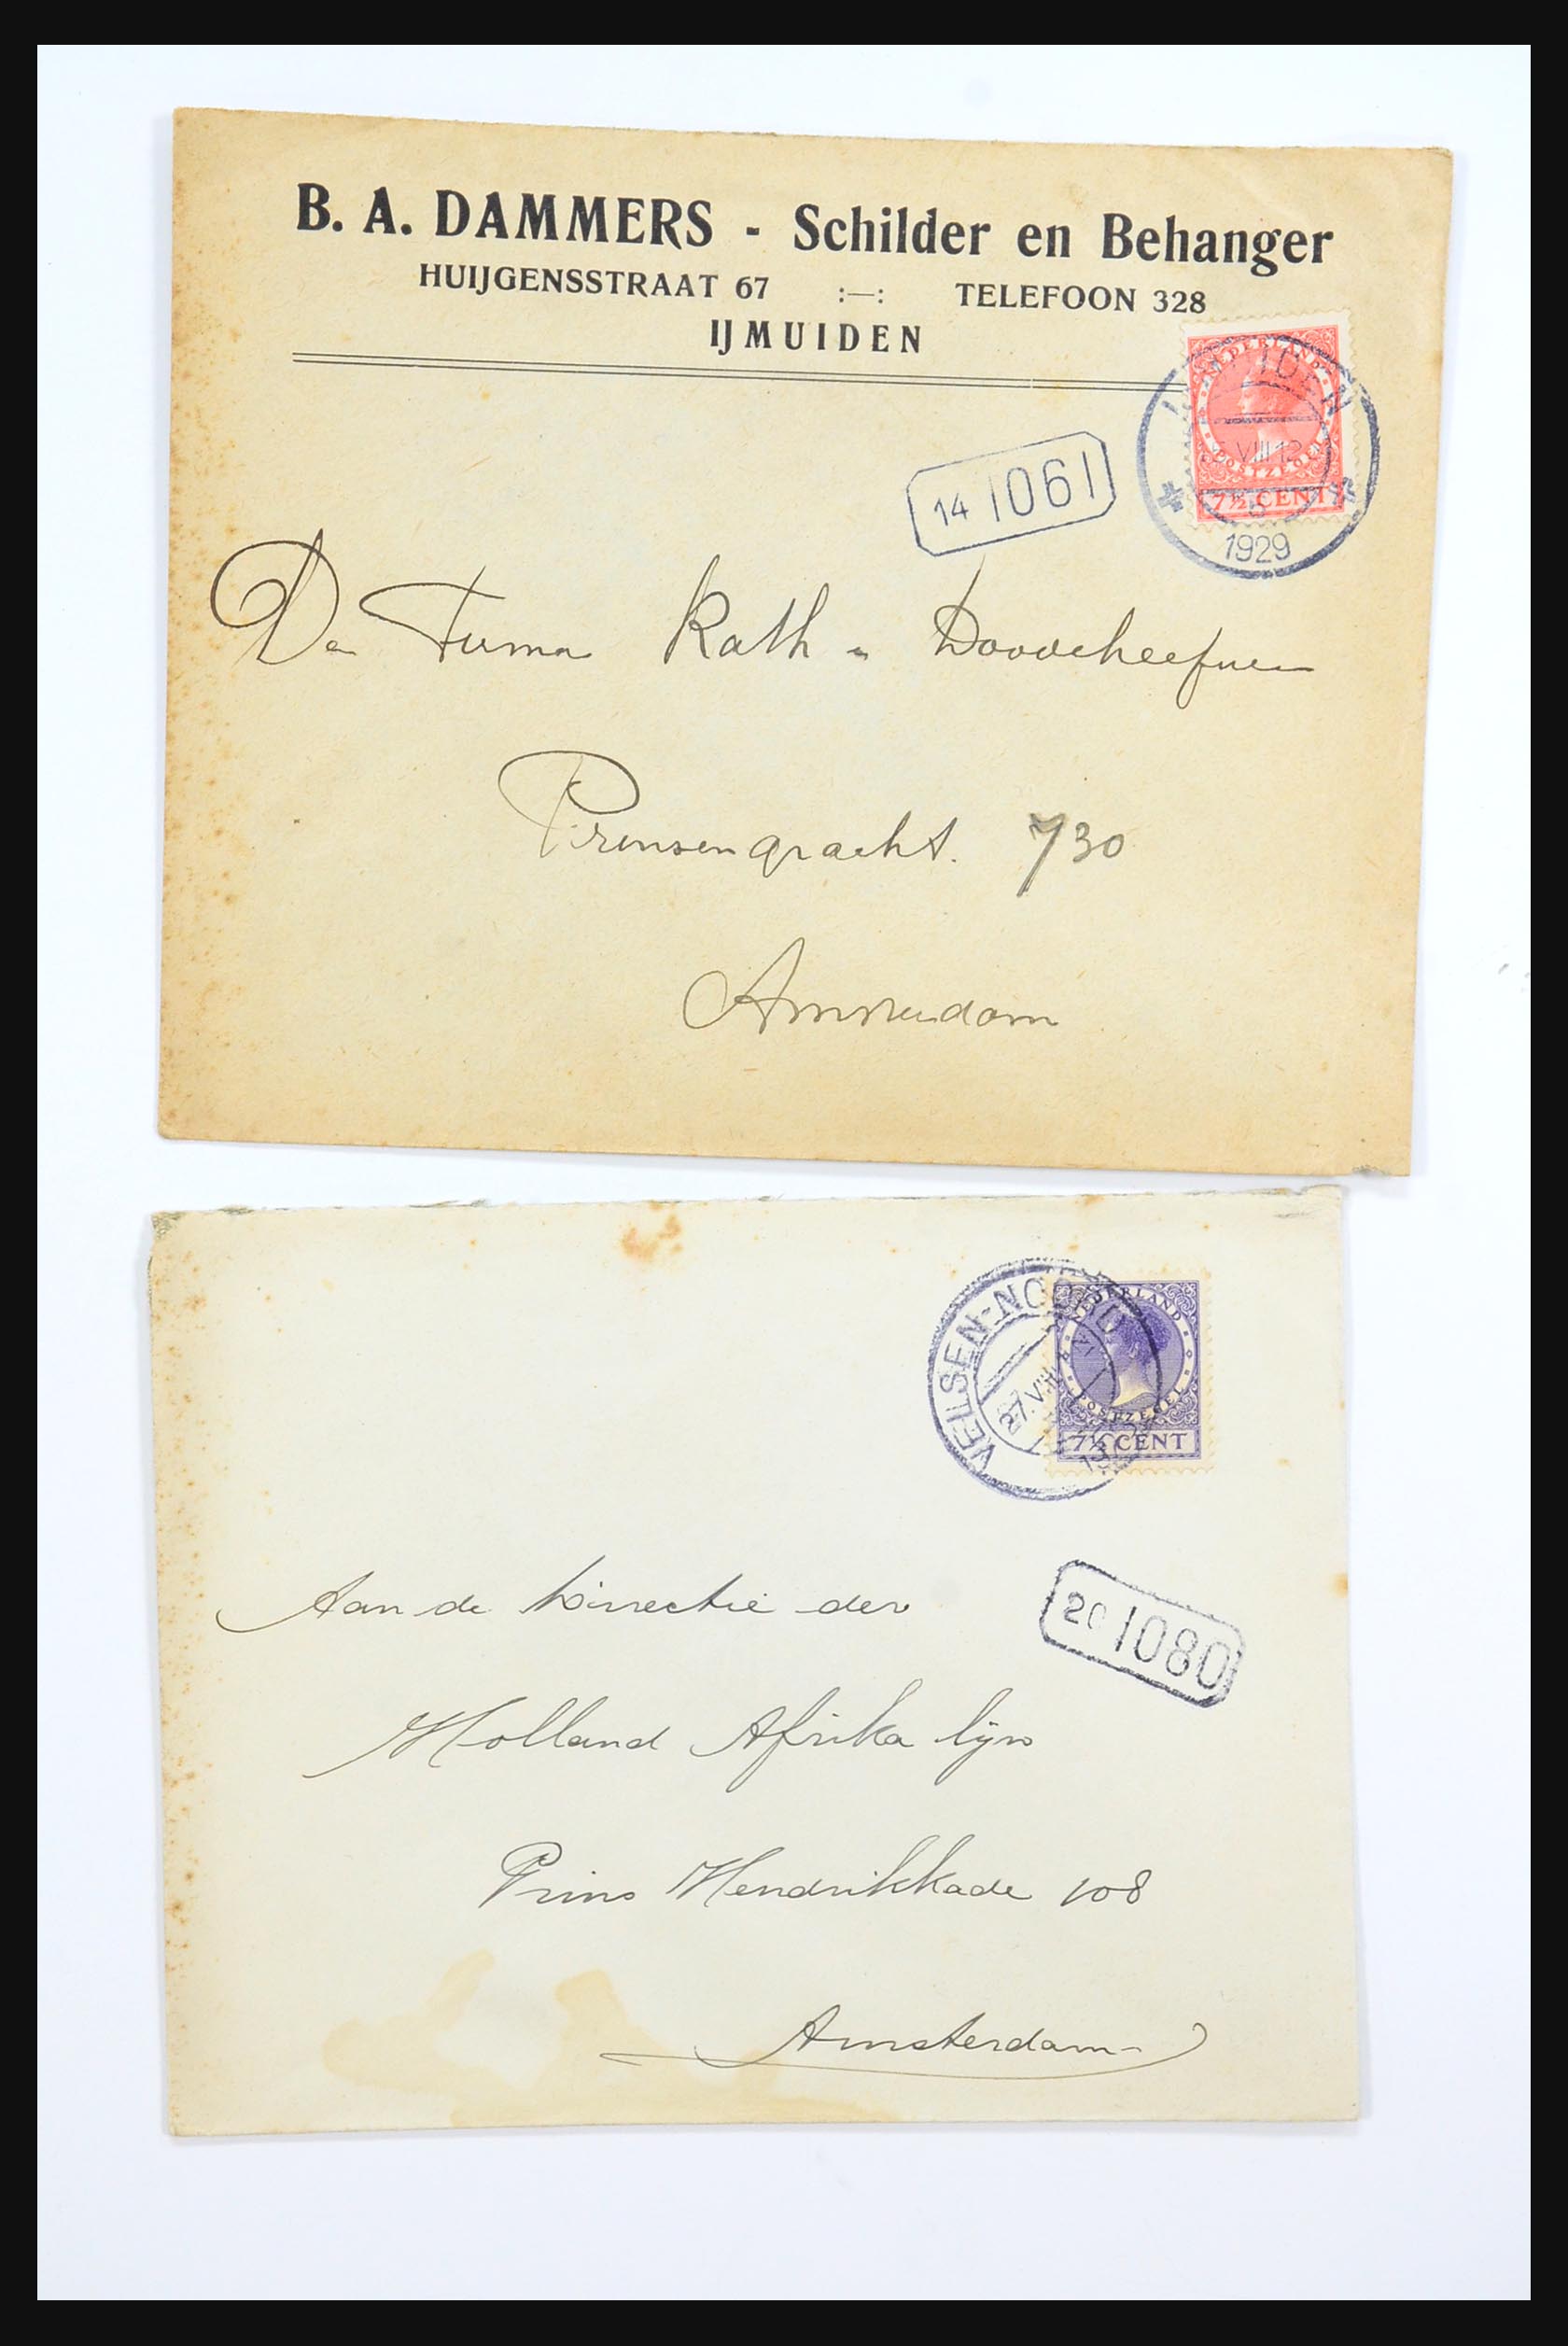 B. A. DAMMERS - Schilder en Behanger
HUIJGENSSTRAAT 67 :—: TELEFOON 328
IJMUIDEN
NEDERLAND
POSTZEGEL
7½ CENT
IJMUIDEN
VIII 12
1929
14 1061
De Firma Rath
Prinsengracht. 730
Amsterdam
VELSEN-NOORD
27.VIII
NEDERLAND
POSTZEGEL
7½ CENT
20 1080
Aan de Directie der
Holland Afrika lijn
Prins Hendrikkade 108
Amsterdam